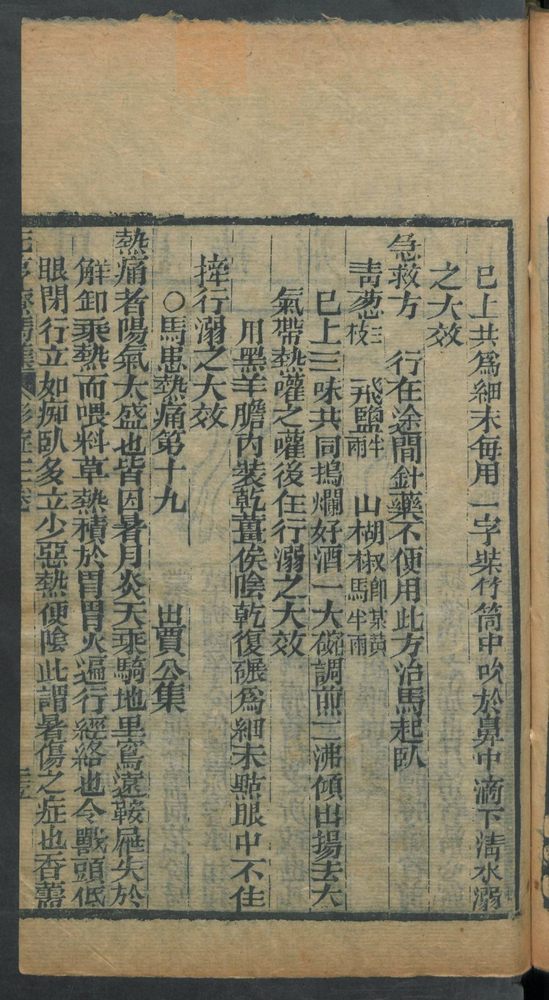 已上共為細末每用一字裝竹筒中吹於鼻中滴下清水溺
之大效
急救方　行在途間針藥不便用此方治馬起臥
青葱三枝　飛鹽半兩　山胡椒即某黄馬半兩
已上三味共同搗爛好酒一大碗調煎二沸傾出揚去大
氣帶熱灌之灌後住行溺之大效
用黑羊膽內裝乾薑俟陰乾復碾為細末點眼中不住
摔行溺之大效
○馬患熱痛第十九　出賈公集
熱痛者陽氣太盛也皆因暑月炎天乘騎地里窵遠鞍屜失於
解卸乘熱而喂料草熱積於胃胃火遍行經絡也令獸頭低
眼閉行立如痴臥多立少惡熱便陰此謂暑傷之症也香薷